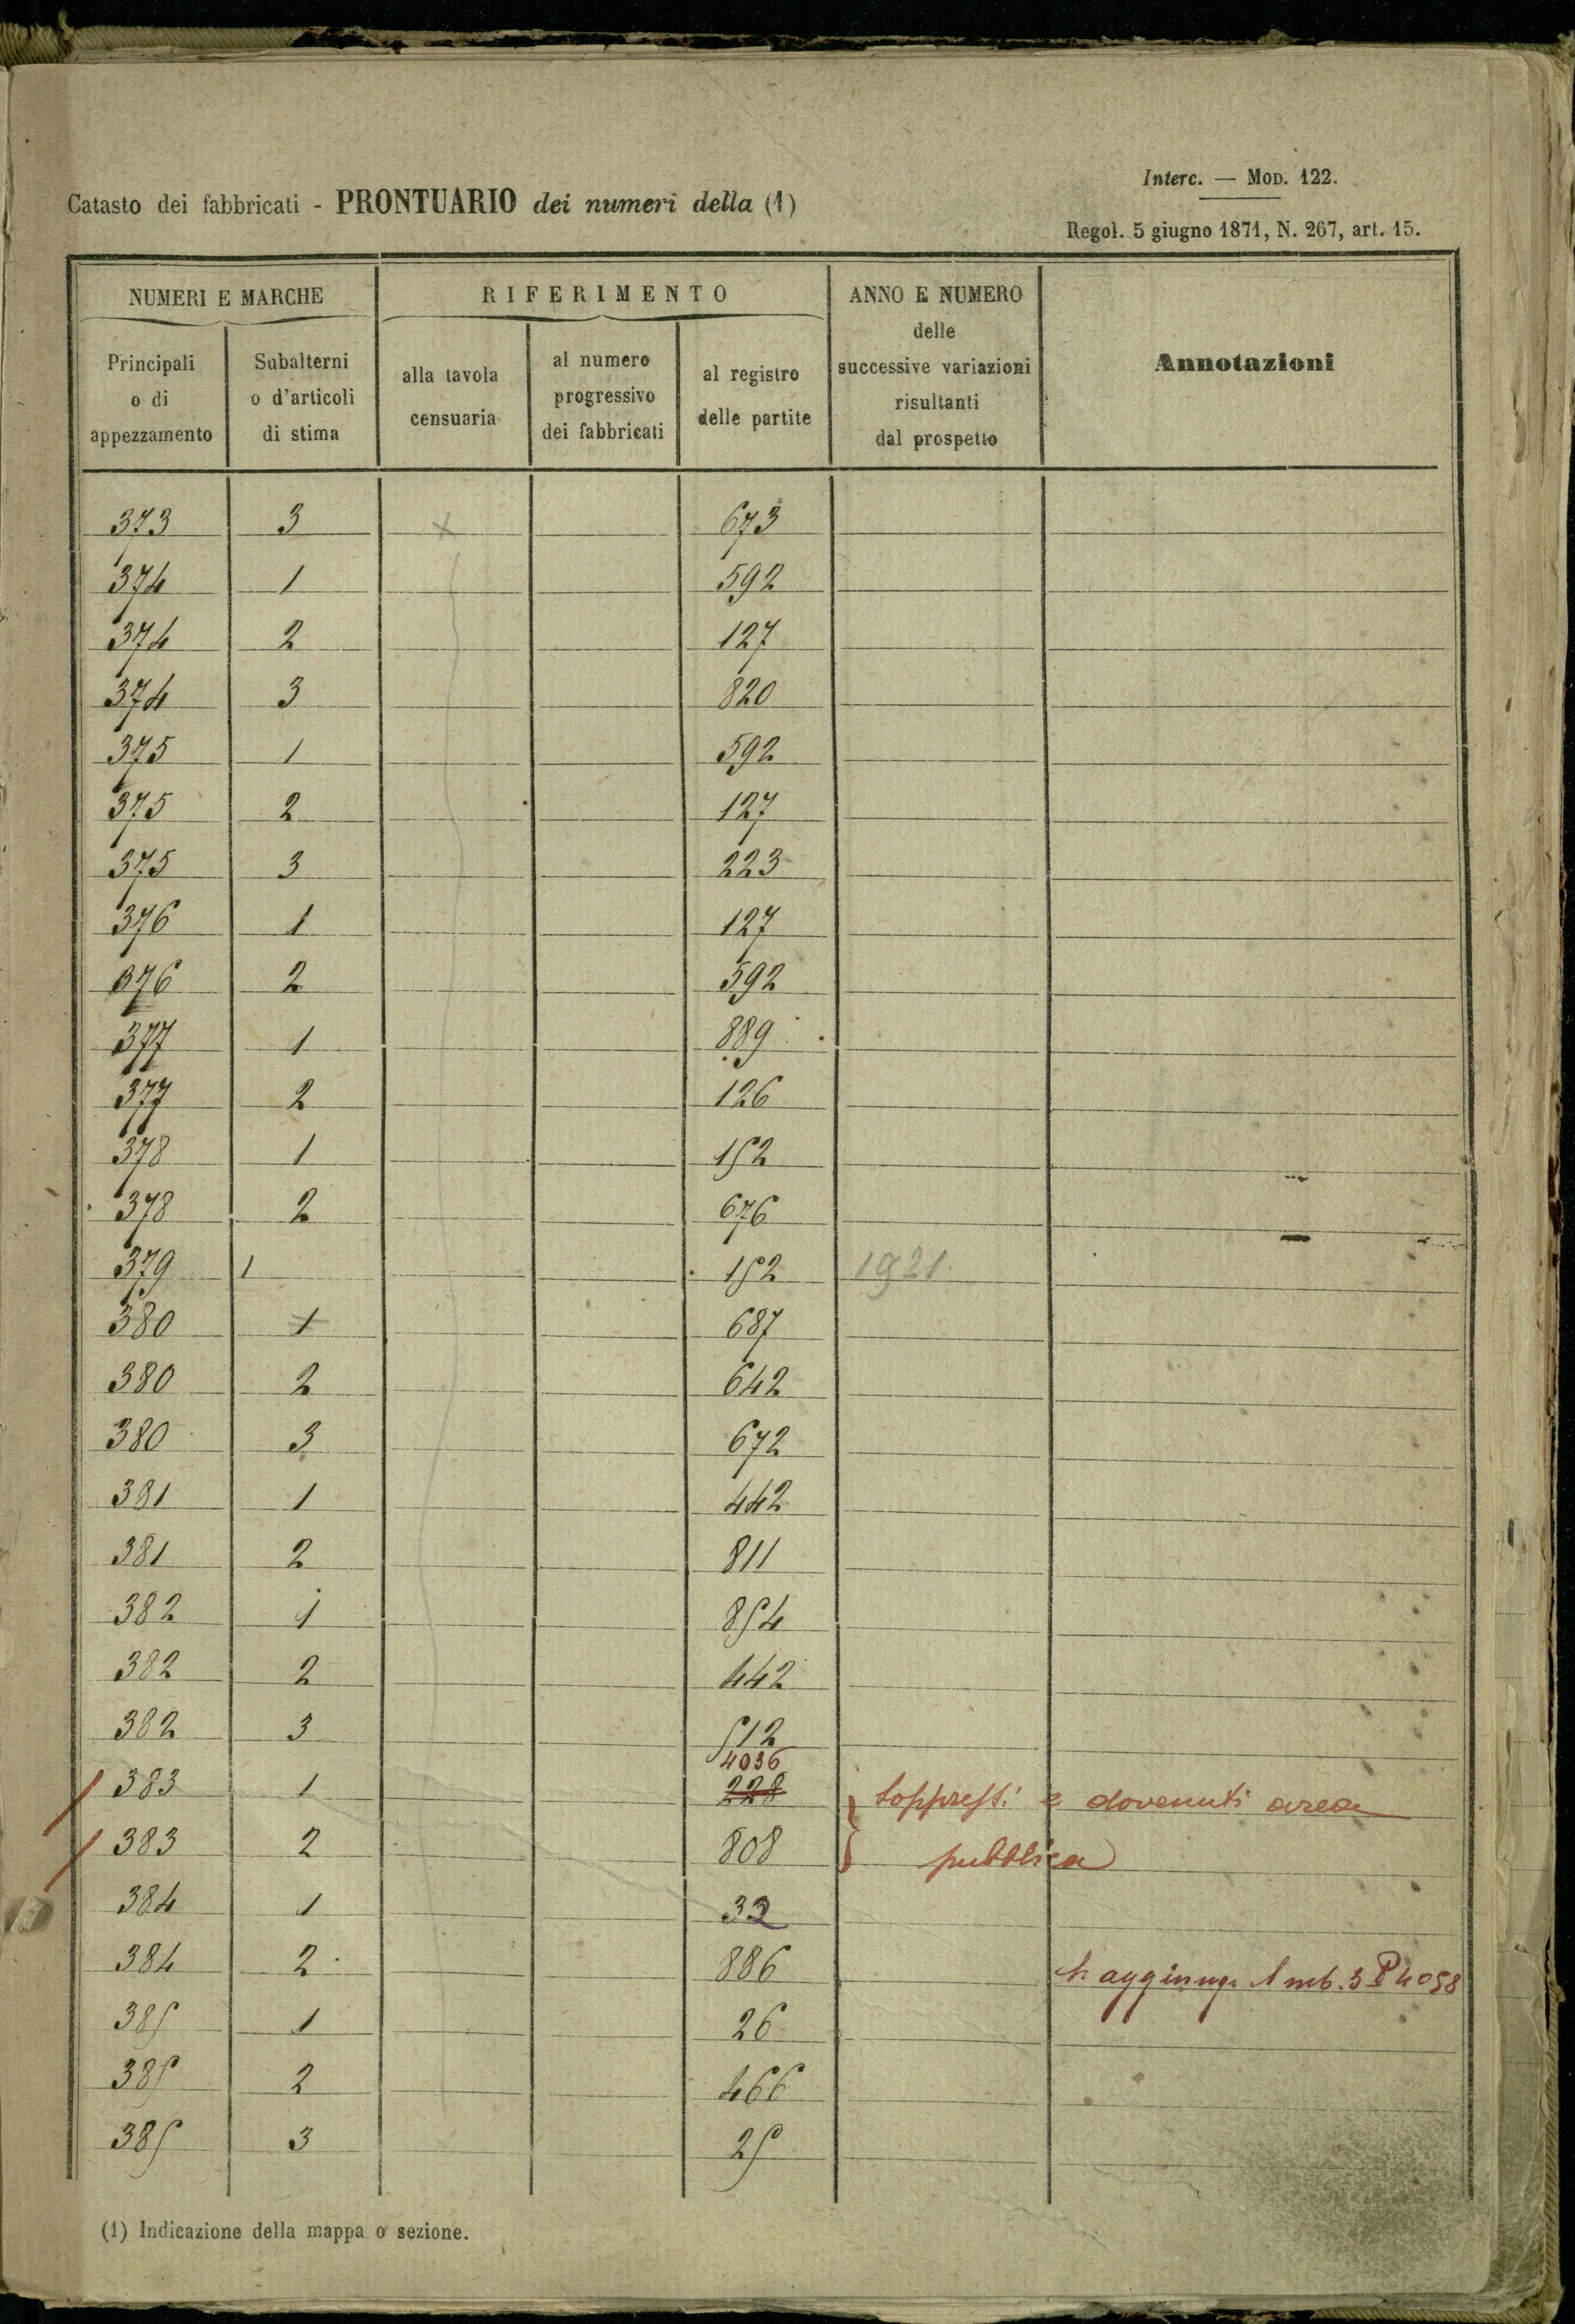 Interc. — Mod. 122.
Catasto dei fabbricati - PRONTUARIO dei numeri della (1)
Regol. 5 giugno 1871, N. 267, art. 15.
NUMERI E MARCHE RIFERIMENTO ANNO E NUMERO delle successive variazioni risultanti dal prospetto Annotazioni
Principali o di appezzamento Subalterni o d'articoli di stima alla tavola censuaria al numero progressivo dei fabbricati al registro delle partite
373 3 x 673
374 1 592
374 2 127
374 3 820
375 1 592
375 2 127
375 3 223
376 1 127
376 2 592
377 1 889
377 2 126
378 1 152
378 2 676
379 1 152 1921
380 1 687
380 2 642
380 3 672
381 1 442
381 2 811
382 1 854
382 2 442
382 3 512
4036
383 1 228 soppressi e dovenuti area
383 2 808 pubblica
384 1 32
384 2 886 3 P 4058
385 1 26
385 2 466
385 3 25
(1) Indicazione della mappa o sezione.